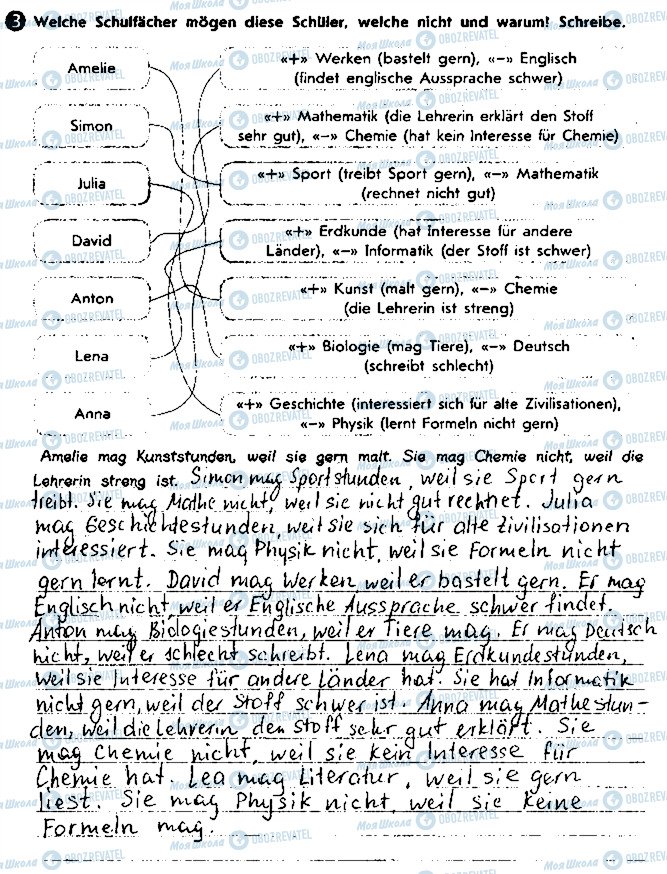 3 Welche Schulfächer mögen diese Schüler, welche nicht und warum? Schreibe.
Amelie
«+» Werken (bastelt gern), «–» Englisch
(findet englische Aussprache schwer)
Simon
«+» Mathematik (die Lehrerin erklärt den Stoff
sehr gut), «–» Chemie (hat kein Interesse für Chemie)
Julia
«+» Sport (treibt Sport gern), «–» Mathematik
(rechnet nicht gut)
David
«+» Erdkunde (hat Interesse für andere
Länder), «–» Informatik (der Stoff ist schwer)
Anton
«+» Kunst (malt gern), «–» Chemie
(die Lehrerin ist streng)
Lena
«+» Biologie (mag Tiere), «–» Deutsch
(schreibt schlecht)
Anna
«+» Geschichte (interessiert sich für alte Zivilisationen),
«–» Physik (lernt Formeln nicht gern)
Amelie mag Kunststunden, weil sie gern malt. Sie mag Chemie nicht, weil die
Lehrerin streng ist. Simon mag Sportstunden, weil sie Sport gern
treibt. Sie mag Mathe nicht, weil sie nicht gut rechnet. Julia
mag Geschichtestunden, weil sie sich für alte Zivilisationen
interessiert. Sie mag Physik nicht, weil sie Formeln nicht
gern lernt. David mag Werken weil er bastelt gern. Er mag
Englisch nicht, weil er Englische Aussprache schwer findet.
Anton mag Biologiestunden, weil er Tiere mag. Er mag Deutsch
nicht, weil er schlecht schreibt. Lena mag Erdkundestunden,
weil sie Interesse für andere Länder hat. Sie hat Informatik
nicht gern, weil der Stoff schwer ist. Anna mag Mathestun-
den, weil die Lehrerin den Stoff sehr gut erklärt. Sie
mag Chemie nicht, weil sie kein Interesse für
Chemie hat. Lea mag Literatur, weil sie gern
liest. Sie mag Physik nicht, weil sie keine
Formeln mag.
Моя Школа OBOZREVATEL